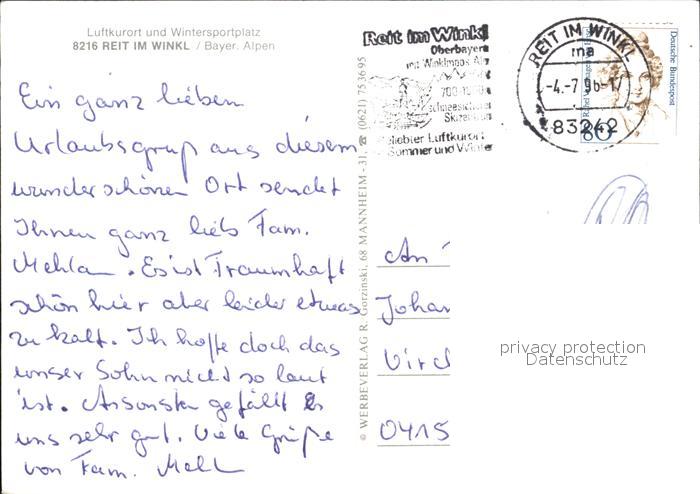 Luftkurort und Wintersportplatz
8216 REIT IM WINKL / Bayer. Alpen
Ein ganz lieben
Urlaubsgruß aus diesem
wunderschönen Ort sendet
Ihnen ganz lieb Fam.
Mehla. Es ist Traumhaft
schön hier aber leider etwas
zu kalt. Ich hoffe doch das
unser Sohn nicht so laut
ist. Ansonsten gefällt es
uns sehr gut. Viele Grüße
von Fam. Mehl
© WERBEVERLAG R. Gorzinski, 68 MANNHEIM - 31, ☎ (0621) 753695
Reit im Winkl
Oberbayern
mit Winklmoos Alm
700-
schneesicher
beliebter Luftkurort
Sommer und Winter
REIT IM WINKL
ma
-4.-7.96-17
83242
Deutsche Bundespost
80
An
Johan
Virch
0415
privacy protection
Datenschutz